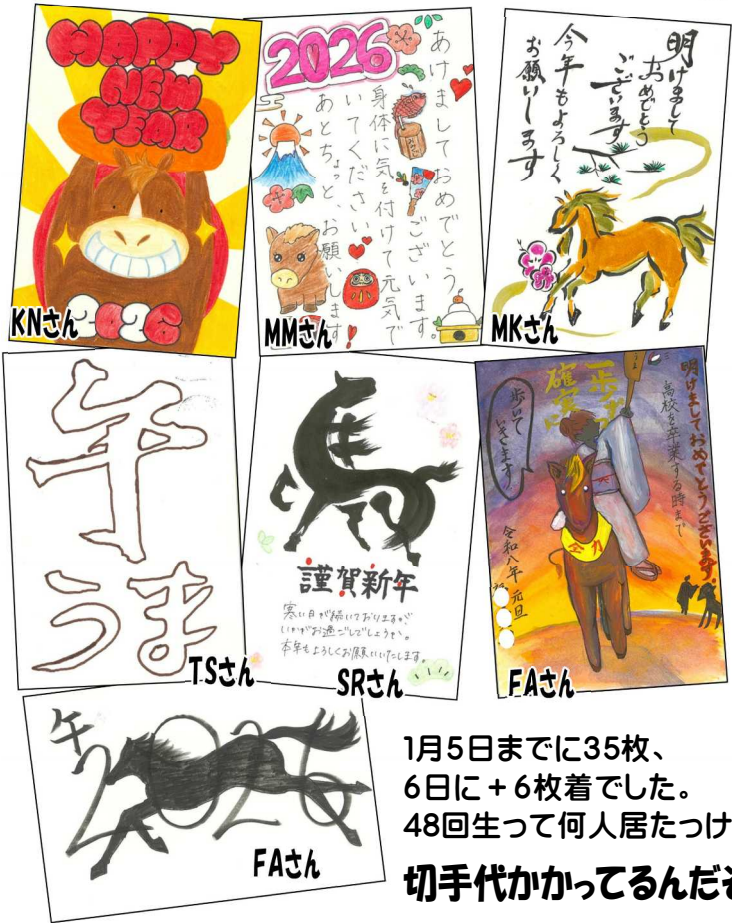 HAPPY
NEW
YEAR
2026
KNさん
2026
あけましておめでとう
ございます。
身体に気を付けて元気で
いてください
あとちょっと、お願いします
MMさん
明けまして
おめでとう
ございます
今年もよろしく
お願いします
MKさん
午
うま
TSさん
謹賀新年
寒い日が続いておりますが
いかがお過ごしでしょうか。
本年もよろしくお願いいたします。
SRさん
明けましておめでとうございます。
高校を卒業する時まで
一歩ずつ
確実に
歩いて
いきます
全力
令和八年 元旦
FAさん
午
2026
FAさん
1月5日までに35枚、
6日に+6枚着でした。
48回生って何人居たっけ
切手代かかってるんだぞ